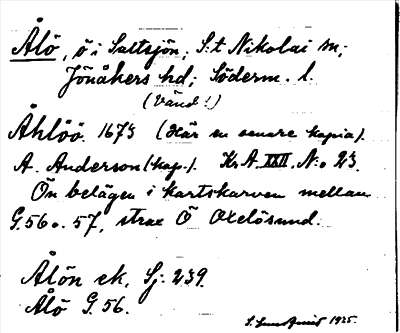 Ålö, ö i Saltsjön; S:t Nikolai sn;
Jönåkers hd; Söderm. l.
(Vänd!)
Åhlöö 1673 (här en senare kopia).
A. Anderson (kop.). Kr.A. XXII. No 23.
Ön belägen i kartskarven mellan
G.56 o. 57, strax Ö Oxelösund.
Ålön ek, Sj: 239.
Ålö G. 56.
1925.